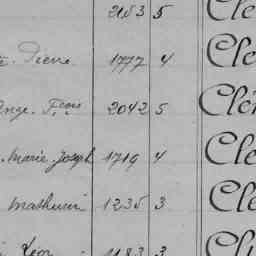 2153 5 Cle
. Pierre 1777 4 Cle
Ange. Fçois 2042 5 Clé
. Marie. Joseph 1719 4 Cle
Mathurin 1235 3 Cle
Léon 1183 3 Cl